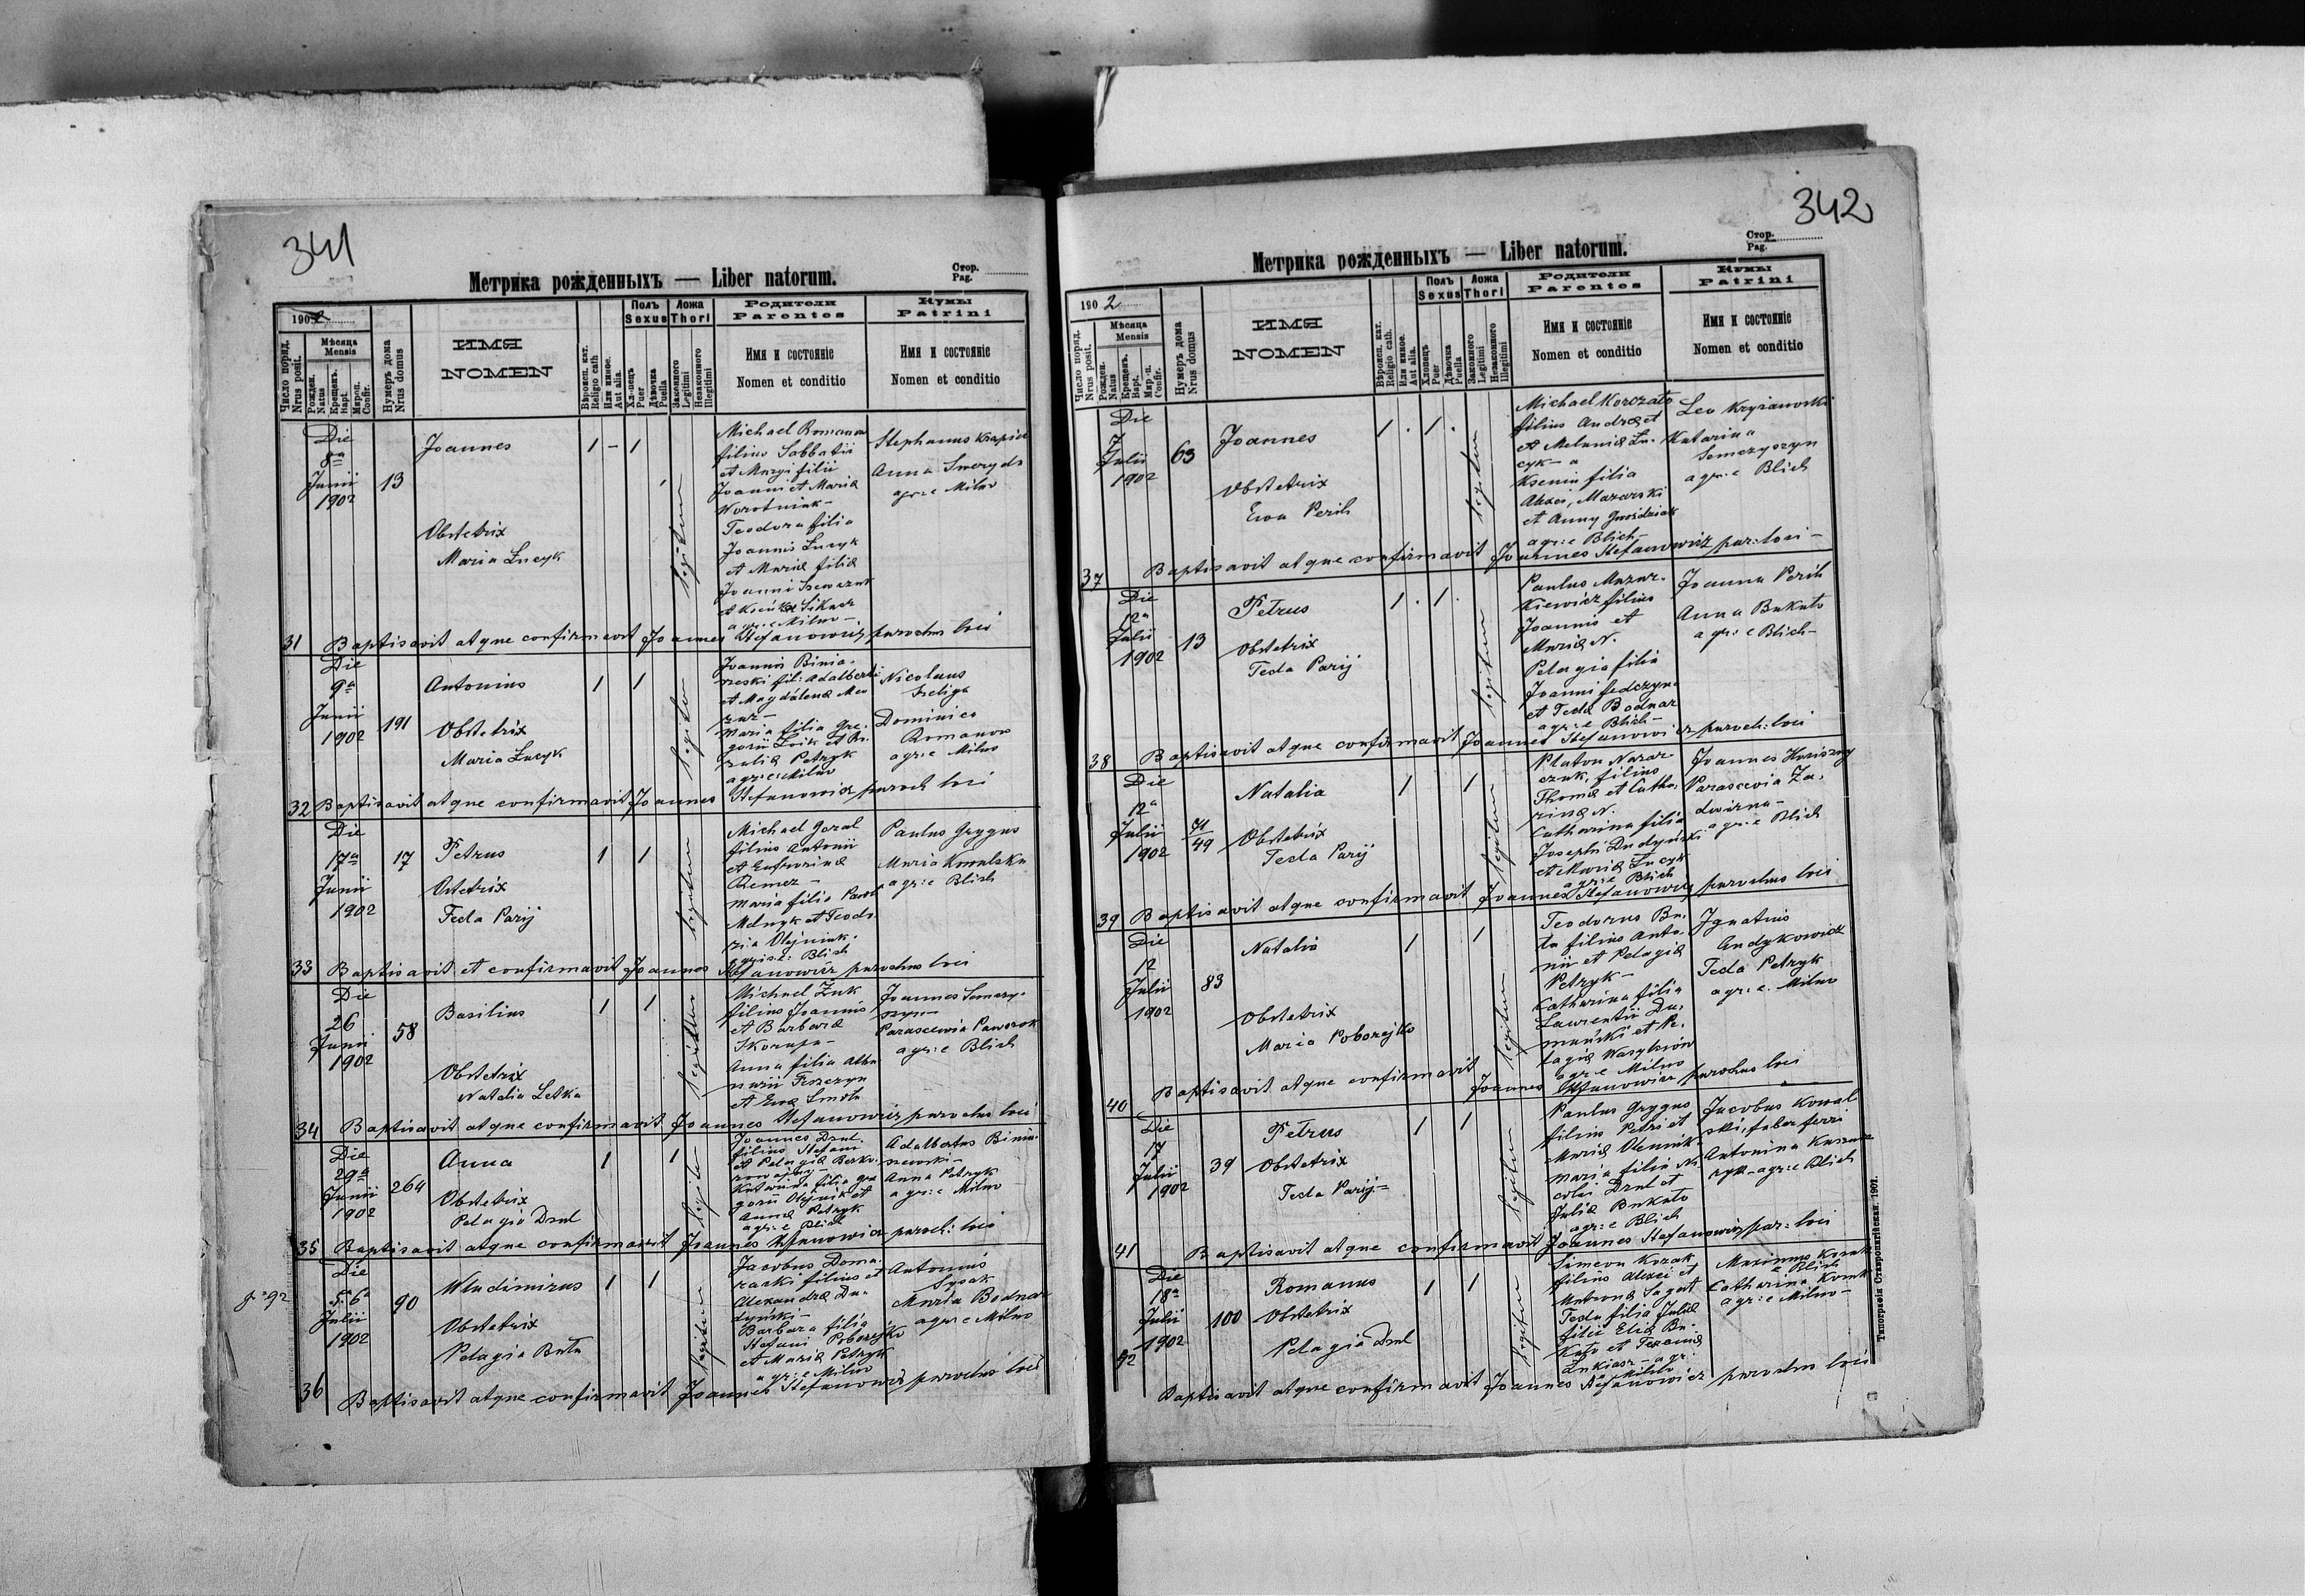 341
Метрика рожденныхъ — Liber natorum.
Стор.
Pag.
190
Число поряд.
Nrus posit.
Мѣсяца
Mensis
Рожден.
Natus
Крещенъ.
Bapt.
Мѵроп.
Confir.
Нумеръ дома
Nrus domus
ИМЯ
NOMEN
Вѣроисп. кат.
Religio cath
Или иное.
Aut alia.
Полъ
Sexus
Хлопецъ
Puer
Дѣвочка
Puella
Ложа
Thori
Законного
Legitimi
Незаконного
Illegitimi
Родители
Parentes
Имя и состояніе
Nomen et conditio
Кумы
Patrini
Имя и состояніе
Nomen et conditio
Die
8ª
Junii
1902
13
Joannes
Obstetrix
Maria Łucyk
1 - 1
legitimi
Michael Romanow
filius Sabbatii
et filii
Joanni et Maria
Worotniak -
Teodora filia
Joannis Łucyk
et Maria filia
Joanni
agr: e Milno -
Stephanus
Anna
agr: e Milno
31 Baptisavit atque confirmavit Joannes Stefanowicz parochus loci
Die
9ª
Junii
1902
191
Antonius
Obstetrix
Maria Łucyk
1 1
Joannis Binia-
szeski fil: Adalberti
et Magdalena
Maria filia Gre-
gorii et Ro-
zalia Petryk
agr: e Milno
Nicolaus
Feliga
Dominica
Romanow
agr: e Milno
32 Baptisavit atque confirmavit Joannes Stefanowicz paroch loci
Die
17ª
Junii
1902
17
Petrus
Obstetrix
Tecla Parij
1 1
legitimi
Michael Goral
filius Antonii
et Eufrozina
Remez -
Maria filia Pauli
Melnyk et Teodo-
zia Olejniuk -
Blich
Paulus Grygus
Maria Kowalska
agr: e Blich
33 Baptisavit et confirmavit Joannes Stefanowicz parochus loci
Die
26
Junii
1902
58
Basilius
Obstetrix
Natalia Letka
1 1
Michael Żuk
filius Joannis
et Barbara
Skorupa -
Anna filia
et Eva Smola
Joannes Semczy-
szyn -
Parascewia
agr: e Blich
34 Baptisavit atque confirmavit Joannes Stefanowicz parochus loci
Die
29ª
Junii
1902
264
Anna
Obstetrix
Pelagia Drul
1 1
Joannes Drul
filius Stefani
et Pelagia
Katarina filia Gre-
gorii Olejnik et
Anna Petryk
agr: e Blich
Adalbertus Binia-
szewski -
Anna Petryk
agr: e Milno
35 Baptisavit atque confirmavit Joannes Stefanowicz paroch: loci
Die
5. 6ª
Julii
1902
90
Wladimirus
Obstetrix
Pelagia Buta
1 1
Jacobus Doma-
racki filius et
Alexandra Du-
dyński -
Barbara filia
Stefani Poborejko
et Maria Petryk
agr: e Milno
Antonius
Sysak
Maria Bodnar
agr: e Milno
36 Baptisavit atque confirmavit Joannes Stefanowicz parochus loci
342
Метрика рожденныхъ — Liber natorum.
Стор.
Pag.
1902
Число поряд.
Nrus posit.
Мѣсяца
Mensis
Рожден.
Natus
Крещенъ.
Bapt.
Мѵроп.
Confir.
Нумеръ дома
Nrus domus
ИМЯ
NOMEN
Вѣроисп. кат.
Religio cath.
Или иное.
Aut alia.
Полъ
Sexus
Хлопецъ
Puer
Дѣвочка
Puella
Ложа
Thori
Законного
Legitimi
Незаконного
Illegitimi
Родители
Parentes
Имя и состояніе
Nomen et conditio
Кумы
Patrini
Имя и состояніе
Nomen et conditio
Die
7
Julii
1902
63
Joannes
Obstetrix
Ewa Perih
1 . 1 .
Michael
filius Andrea et
et Melania Łu-
cyk -
Ksenia filia
Alexei, Mazurski
et Anny Gwoździak
agr: e Blich -
Leo Kryżanowski
Katarina
Semczyszyn
agr: e Blich
37 Baptisavit atque confirmavit Joannes Stefanowicz par: loci -
Die
12ª
Julii
1902
13
Petrus
Obstetrix
Tecla Parij
1 . 1 .
Paulus Mazur-
kiewicz filius
Joannis et
Maria N.
Pelagia filia
Joanni Fedczyna
et Tecla Bodnar
agr: e Blich -
Joanna Perih
Anna Bukuta
agr: e Blich -
38 Baptisavit atque confirmavit Joannes Stefanowicz paroch: loci
Die
12ª
Julii
1902
71
49
Natalia
Obstetrix
Tecla Parij
1 1
Platon Nazar-
czuk, filius
Thoma et Catha-
rina N.
Catharina filia
Josephi Dudyński
et Maria Łucyk
agr: e Blich
Joannes
Parascevia Za-
dwirna -
agr: e Blich
39 Baptisavit atque confirmavit Joannes Stefanowicz parochus loci
Die
12
Julii
1902
83
Natalia
Obstetrix
Maria Poborejko
1 1
Teodorus Bu-
ta filius Anto-
nii et Pelagia
Petryk -
Catharina filia
Laurentii Du-
mański et Pe-
lagia Wasylkiów
agr: e Milno
Ignatius
Andykowicz
Tecla Petryk
agr: e. Milno
40 Baptisavit atque confirmavit Joannes Stefanowicz parochus loci
Die
17
Julii
1902
39
Petrus
Obstetrix
Tecla Parij. -
1 1
Paulus Grygus
filius Petri et
Maria Olejnik -
Maria filia Ni-
colai Drul et
Julia Bukuta
agr: e Blich
Jacobus Kowal
ski, faber ferri
Antonina
agr: e Blich
41 Baptisavit atque confirmavit Joannes Stefanowicz par: loci
Die
18ª
Julii
1902
100
Romanus
Obstetrix
Pelagia Drul
1 1
Simeon Kozak
filius Alexei et
Matrona Sagat
Tecla filia Julia
filii Elia Bu-
kuta et
Łukiasz - agr:
e Milno
Maximus Kozak
e Blich
Catharina Kozak
agr: e Milno -
42
Baptisavit atque confirmavit Joannes Stefanowicz parochus loci
Типографія Ставропигійская. 1901.